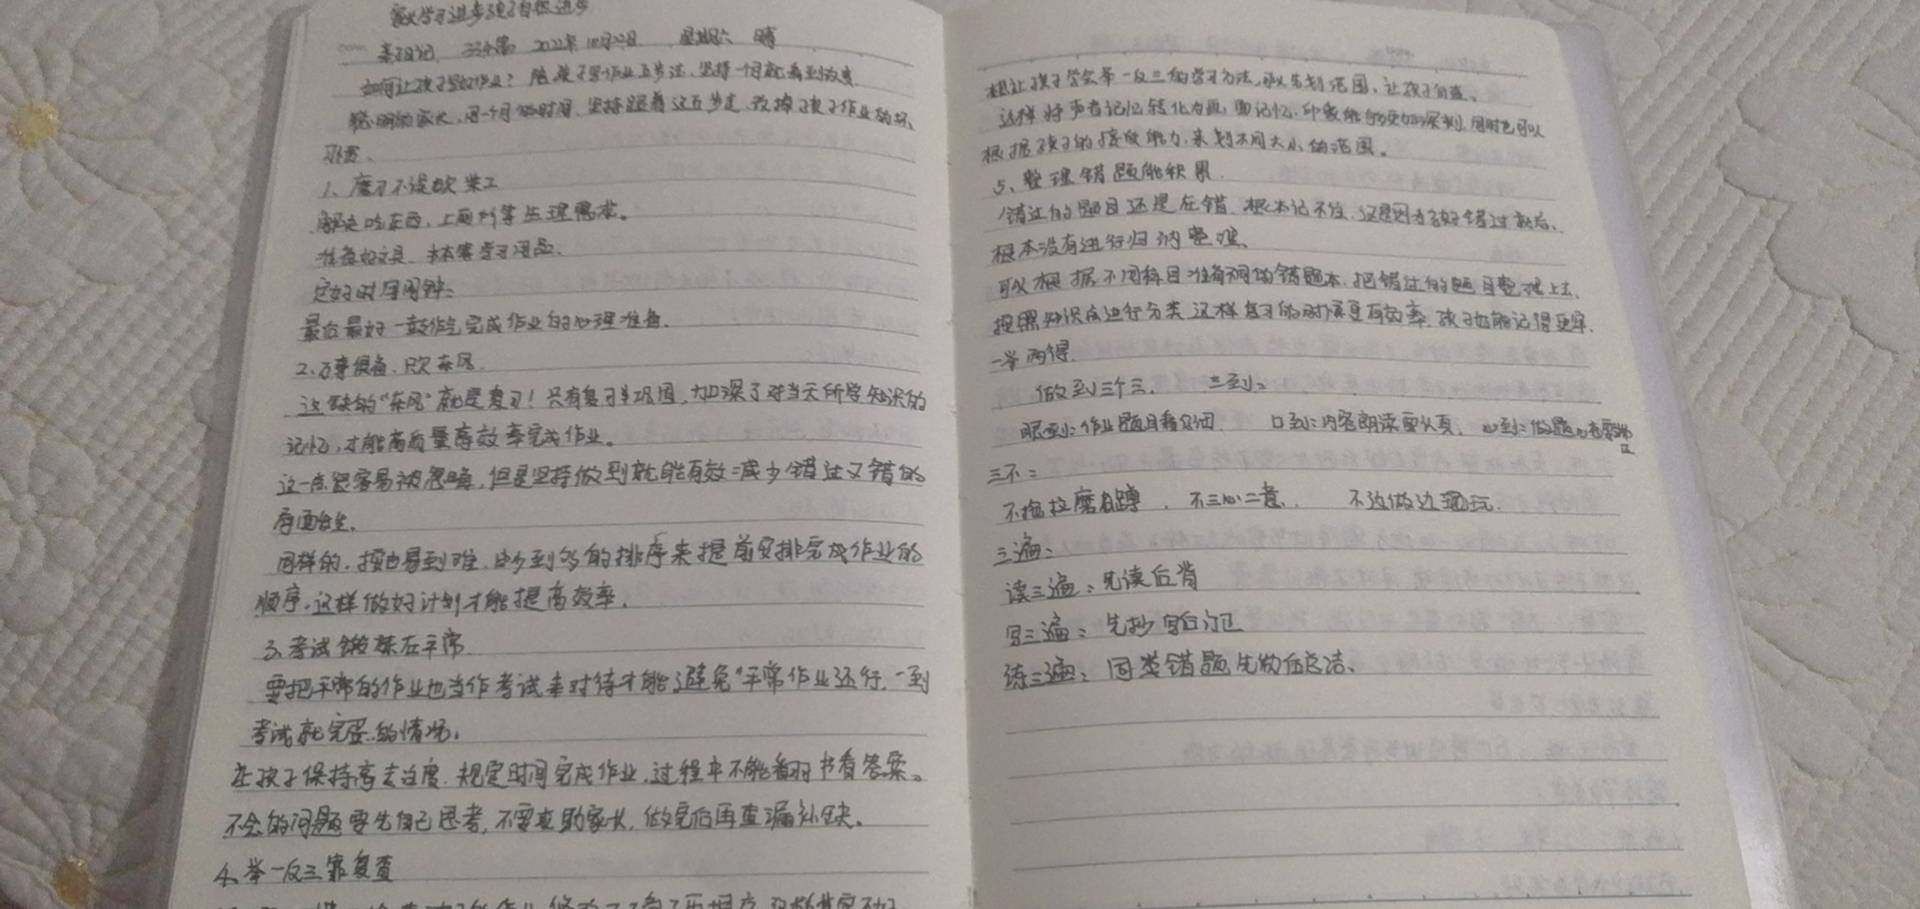 家长学习进步孩子自然进步
2022年10月22日 星期六 晴
如何让孩子写好作业？ 陪孩子写作业五步法，坚持一个月就看到效果
聪明的家长，用一个月的时间，坚持跟着这五步走，改掉孩子作业的坏
习惯、
1、磨刀不误砍柴工
解决吃东西，上厕所等生理需求。
准备好文具、书本等学习用品、
定好时间闹钟、
最后最好一鼓作气完成作业的心理准备、
2、万事俱备，只欠东风、
这里缺的"东风"就是复习！只有复习巩固，加深了对当天所学知识的
记忆，才能高质量高效率完成作业。
这一点很容易被忽略，但是坚持做到就能有效减少错过又错的
同样的，按由易到难，由少到多的排序来提前安排完成作业的
顺序，这样做好计划才能提高效率。
3、考试锻炼在平常
要把平常的作业也当作考试来对待才能避免"平常作业还行，一到
考试就完蛋的情况。
让孩子保持高专注度，规定时间完成作业，过程中不能翻书看答案。
不会的问题要先自己思考，不要求助家长，做完后再查漏补缺。
4、举一反三靠复查
想让孩子学会举一反三的学习方法，可以先划范围，让孩子自查、
这样将声音记忆转化为画面记忆，印象能够更加深刻，同时也可以
根据孩子的接受能力，来划不同大小的范围。
5、整理错题能积累、
错过的题目还是在错，根本记不住，这是因为孩子错过就忘，
根本没有进行归纳整理、
可以根据不同科目准备不同的错题本，把错过的题目整理上去、
按照知识点进行分类，这样复习的时候更有效率，孩子也能记得更牢，
一举两得
做到三个三， 三到：
眼到：作业题目看仔细 口到：内容朗读要认真、 心到：做题
三不：
不拖拉磨蹭 、 不三心二意、 不边做边玩、
三遍：
读三遍：先读后背
写三遍：先抄写后订正
练三遍：同类错题先做后总结、